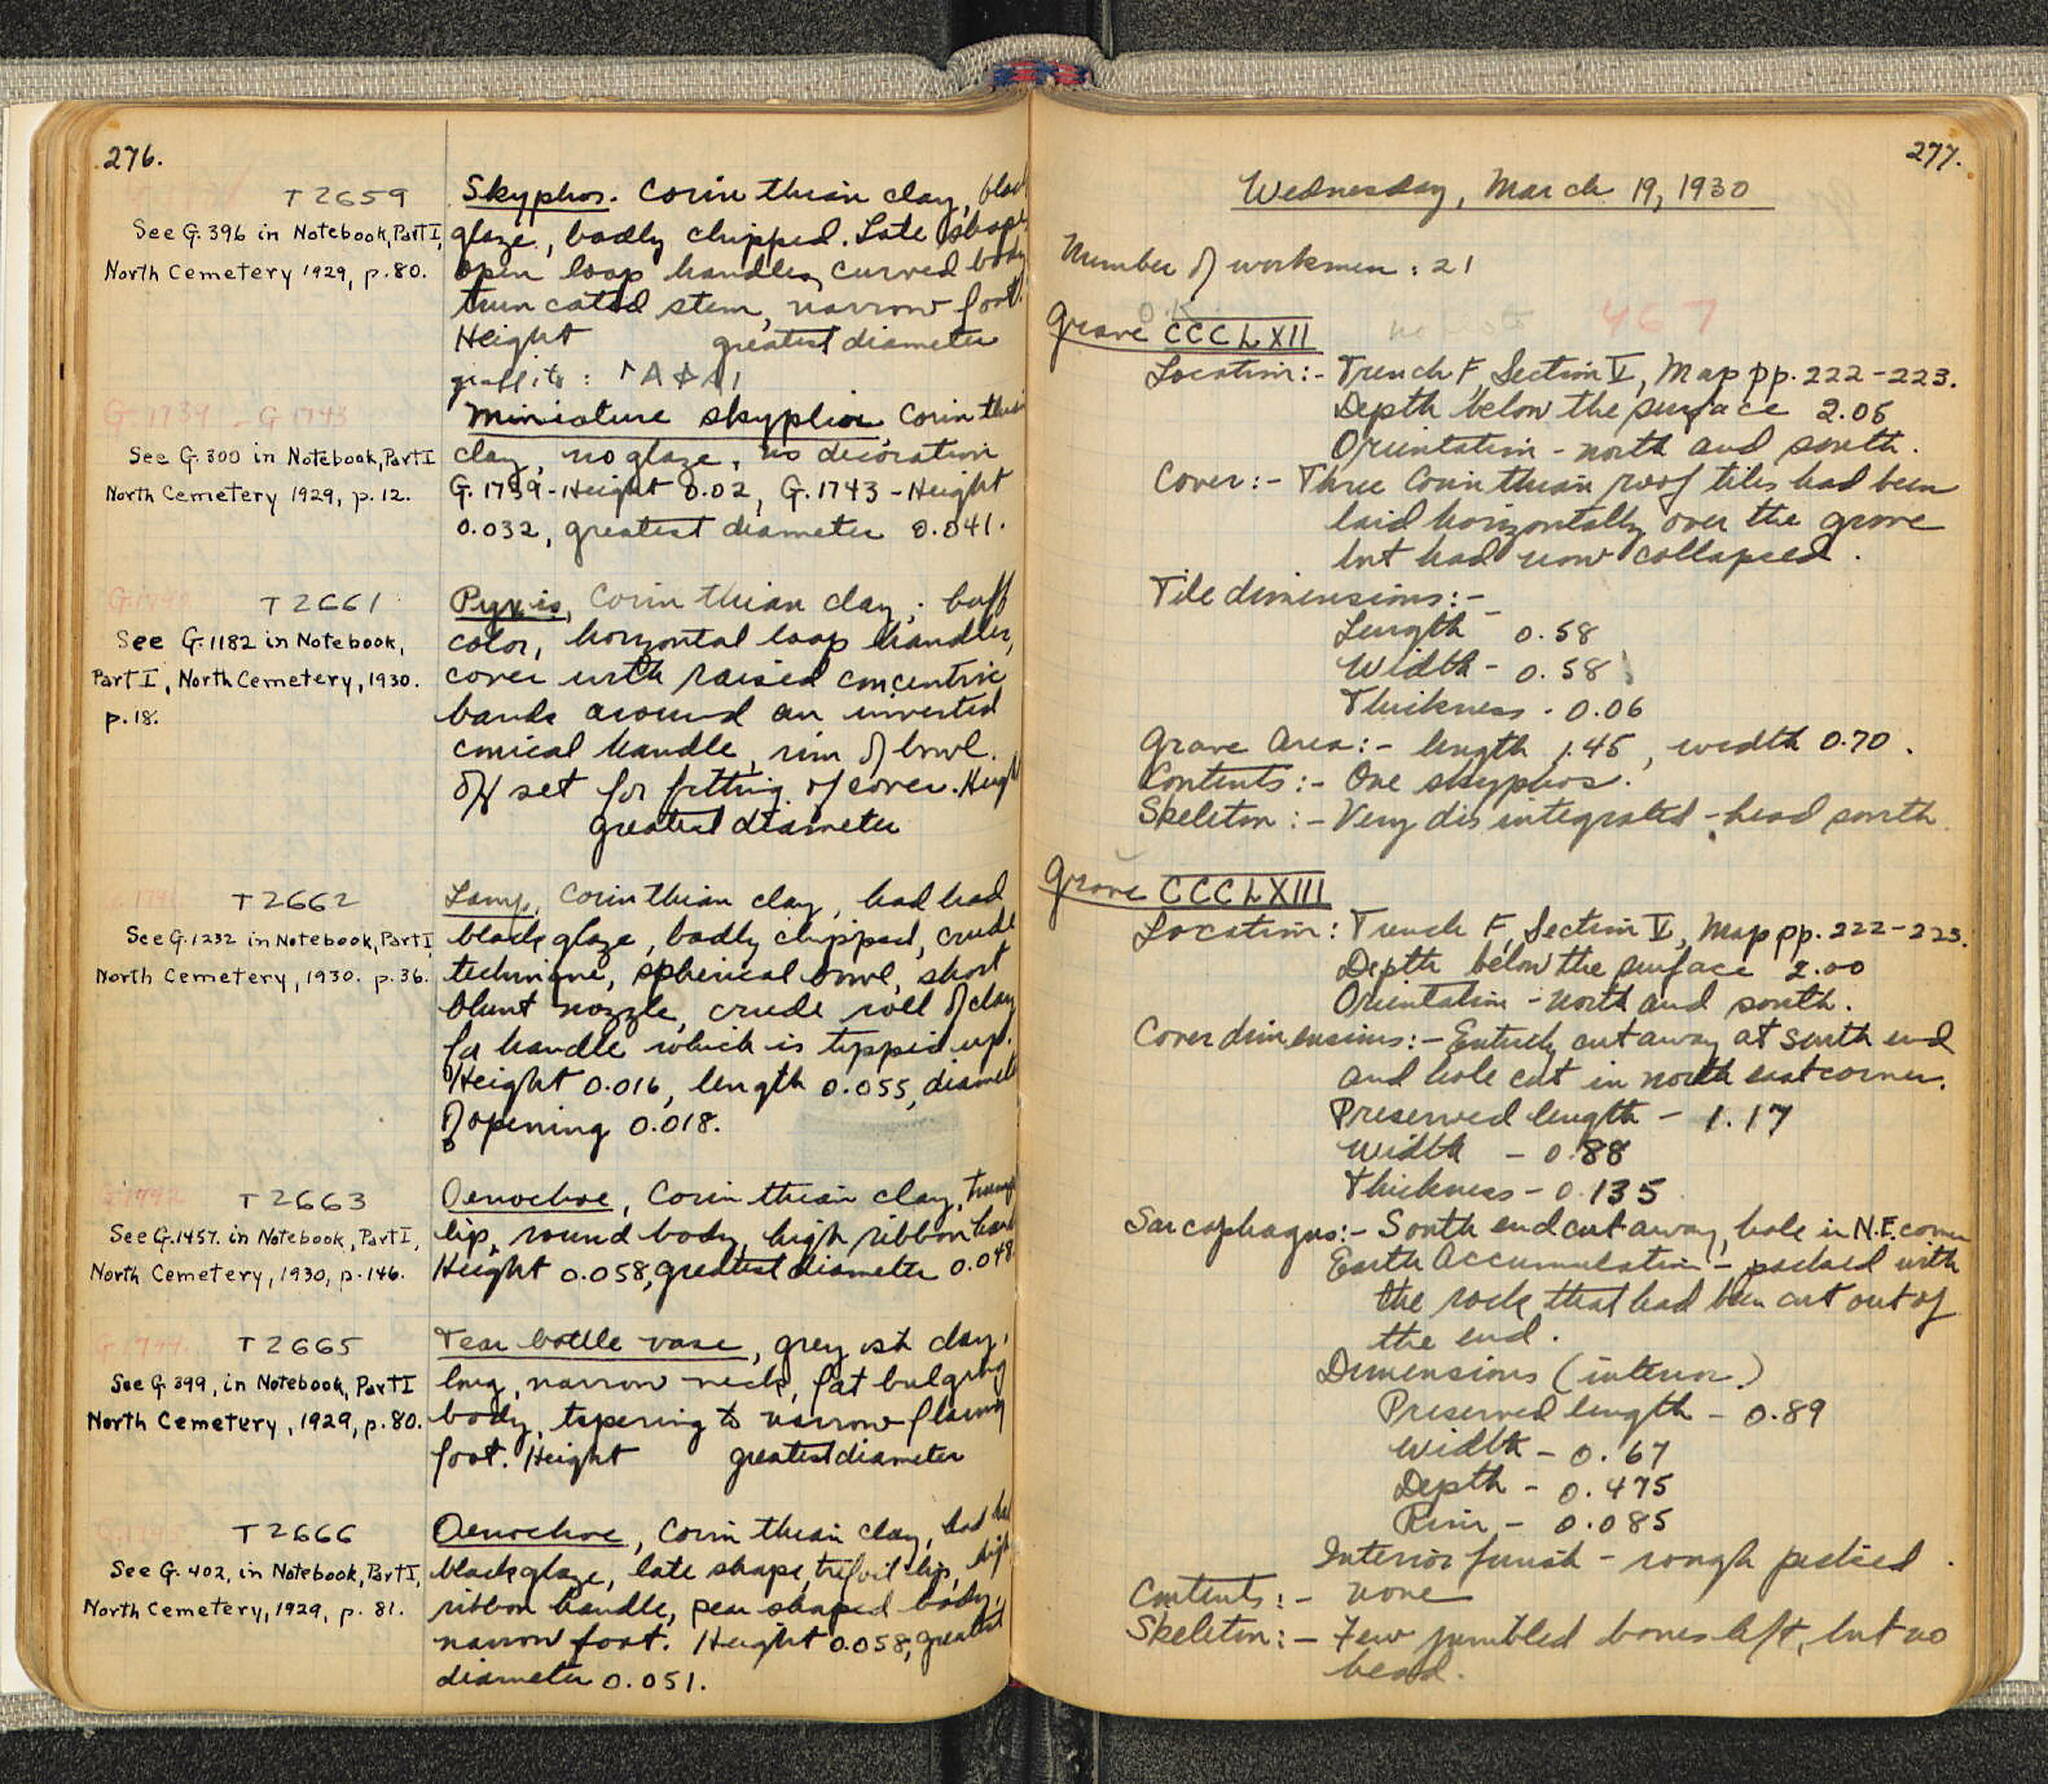 276.
T 2659
See G. 396 in Notebook, Part I,
North Cemetery 1929, p. 80.
Skyphos. Corinthian clay, black
glaze, badly chipped. Late shape
open loop handles, curved body
truncated stem, narrow foot.
Height greatest diameter
graffito:
G. 1739 - G 1743
See G. 300 in Notebook, Part I
North Cemetery 1929, p. 12.
Miniature skyphoi, Corinthian
clay, no glaze, no decoration
G. 1739 - Height 0.02, G. 1743 - Height
0.032, greatest diameter 0.041.
T 2661
See G. 1182 in Notebook,
Part I, North Cemetery, 1930.
p. 18.
Pyxis, Corinthian clay, buff
color, horizontal loop handles,
cover with raised concentric
bands around an inverted
conical handle, rim of bowl
off set for fitting of cover. Height
greatest diameter
T 2662
See G. 1232 in Notebook, Part I
North Cemetery, 1930. p. 36.
Lamp, Corinthian clay, had had
black glaze, badly chipped, crude
technique, spherical bowl, short
blunt nozzle, crude roll of clay
for handle which is tipped up.
Height 0.016, length 0.055, diameter
of opening 0.018.
T 2663
See G. 1457. in Notebook, Part I,
North Cemetery, 1930, p. 146.
Oenochoe, Corinthian clay,
lip, round body, high ribbon
Height 0.058, greatest diameter 0.048
T 2665
See G. 399, in Notebook, Part I
North Cemetery, 1929, p. 80.
Tear bottle vase, greyish clay,
long, narrow neck, fat bulging
body, tapering to narrow flaring
foot. Height greatest diameter
T 2666
See G. 402, in Notebook, Part I,
North Cemetery, 1929, p. 81.
Oenochoe, Corinthian clay, had had
black glaze, late shape, trefoil lip, high
ribbon handle, pear shaped body,
narrow foot. Height 0.058, greatest
diameter 0.051.
277.
Wednesday, March 19, 1930
Number of workmen: 21
O.K.
467
Grave CCCLXII
Location:- Trench F, Section V, Map pp. 222-223.
Depth below the surface 2.05
Orientation - north and south.
Cover:- Three Corinthian roof tiles had been
laid horizontally over the grave
but had now collapsed.
Tile dimensions:-
Length - 0.58
Width - 0.58
Thickness - 0.06
Grave Area:- length 1.45, width 0.70.
Contents:- One skyphos.
Skeleton:- Very disintegrated - head south.
Grave CCCLXIII
Location: Trench F, Section V, Map pp. 222-223.
Depth below the surface 2.00
Orientation - north and south.
Cover dimensions:- Entirely cut away at south end
and hole cut in north east corner.
Preserved length - 1.17
Width - 0.88
Thickness - 0.135
Sarcophagus:- South end cut away, hole in N.E. corner
Earth Accumulation - packed with
the rock that had been cut out of
the end.
Dimensions (interior)
Preserved length - 0.89
Width - 0.67
Depth - 0.475
Rim - 0.085
Interior finish - rough picked.
Contents:- none
Skeleton:- Few jumbled bones left, but no
head.